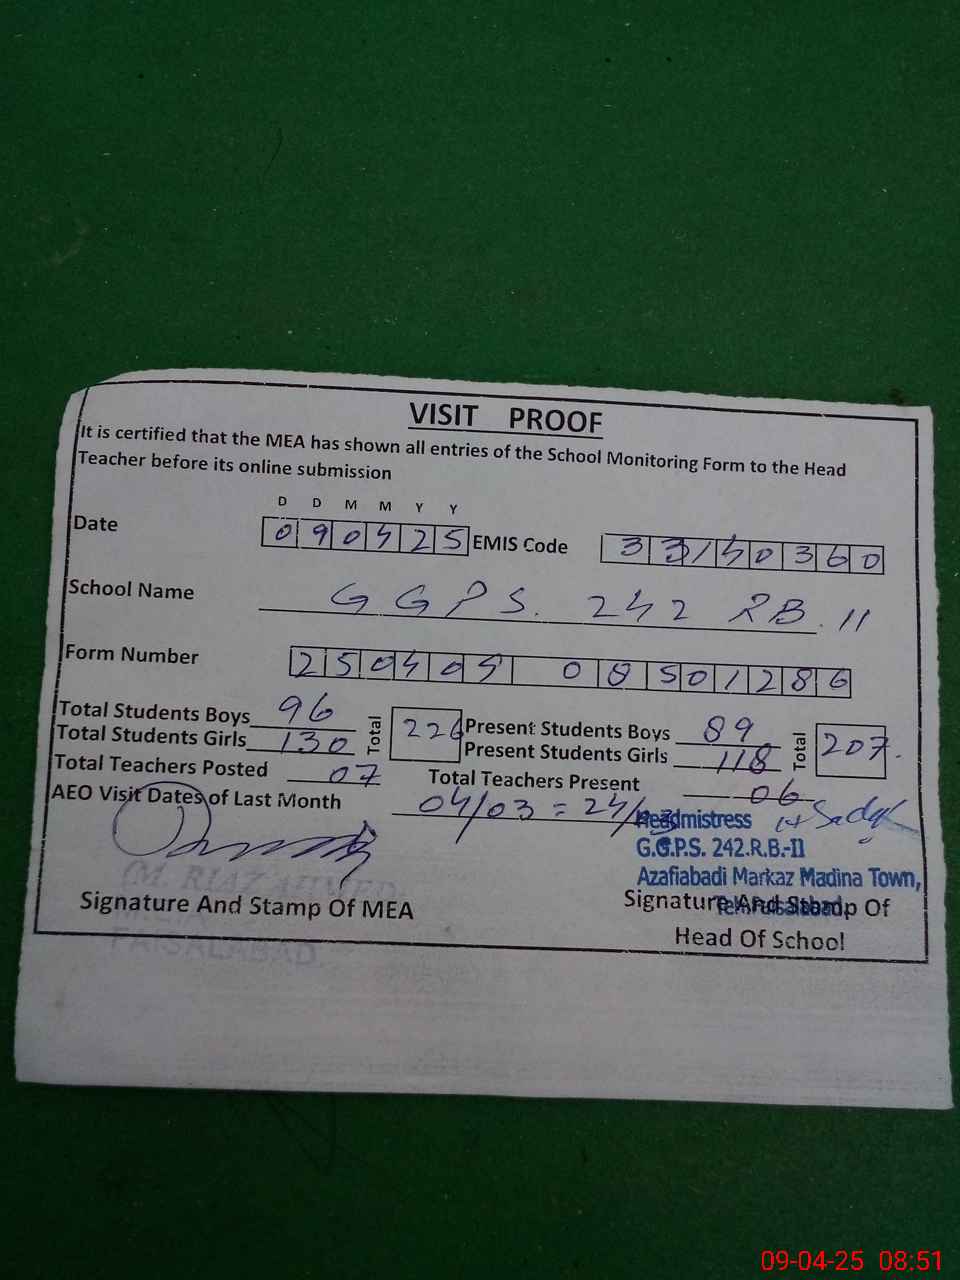 VISIT PROOF
It is certified that the MEA has shown all entries of the School Monitoring Form to the Head
Teacher before its online submission
D D M M Y Y
Date 090425 EMIS Code 33140360
School Name GGPS. 242 RB.II
Form Number 250409 08501286
Total Students Boys 96 Total 226 Present Students Boys 89 Total 207.
Total Students Girls 130 Present Students Girls 118
Total Teachers Posted 07 Total Teachers Present 06
AEO Visit Dates of Last Month 04/03 = 24/03
Headmistress
G.G.P.S. 242.R.B.-II
Azafiabadi Markaz Madina Town,
(M. RIAZ AHMED)
Signature And Stamp Of MEA Signature And Stamp Of
FAISALABAD.
Head Of School
09-04-25 08:51